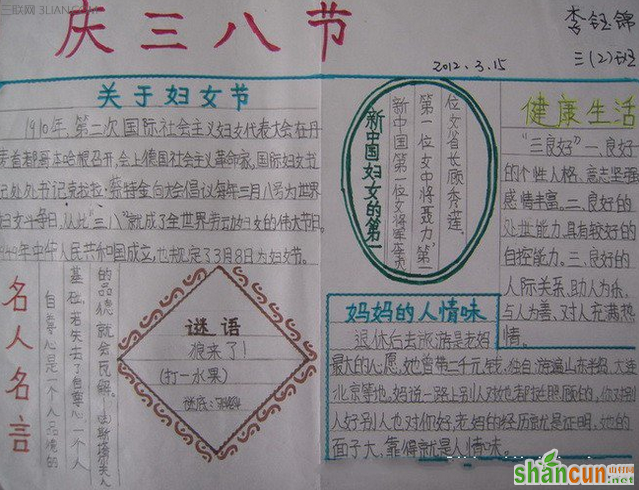 三联网 3LIAN.COM
庆三八节
李钰锦
三(2)班
2012.3.15
关于妇女节
1910年,第二次国际社会主义妇女代表大会在丹
麦首都哥本哈根召开,会上德国社会主义革命家,国际妇女书
记处书记克拉拉·蔡特金向大会倡议每年三月八号为世界
妇女斗争日,从此"三八"就成了全世界劳动妇女的伟大节日。
1949年中华人民共和国成立,也规定了3月8日为妇女节。
名人名言
自尊心是一个人品德的
基础,若失去了自尊心,一个人
的品德就会瓦解。
谜语
狼来了!
(打一水果)
谜底:
新中国妇女的第一
新中国第一位女将军李贞
第一位女中将聂力"第一
位女省长顾秀莲,
健康生活
"三良好"一、良好
的个性人格,意志坚强
感情丰富,二、良好的
处世能力,具有较好的
自控能力。三、良好的
人际关系,助人为乐,
与人为善、对人充满热
情。
妈妈的人情味
退休后去旅游是老妈
最大的心愿,她曾带二千元钱,独自游遍山东半岛、大连
北京等地。妈说一路上别人对她都挺照顾的,你对别
人好别人也对你好,老妈的经历就是证明,她的
面子大,靠得就是人情味。
shancun
山村网
.net